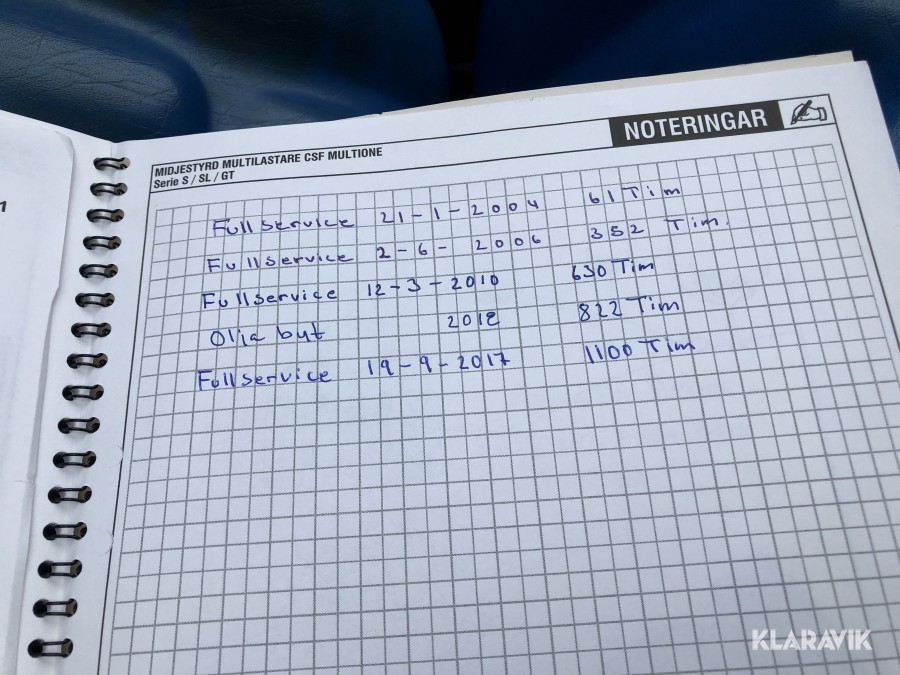 NOTERINGAR
MIDJESTYRD MULTILASTARE CSF MULTIONE
Serie S / SL / GT
Fullservice 21-1-2004 61 Tim
Fullservice 2-6-2006 352 Tim.
Fullservice 12-3-2010 630 Tim
Olja byt 2012 822 Tim
Fullservice 19-9-2017 1100 Tim
KLARAVIK